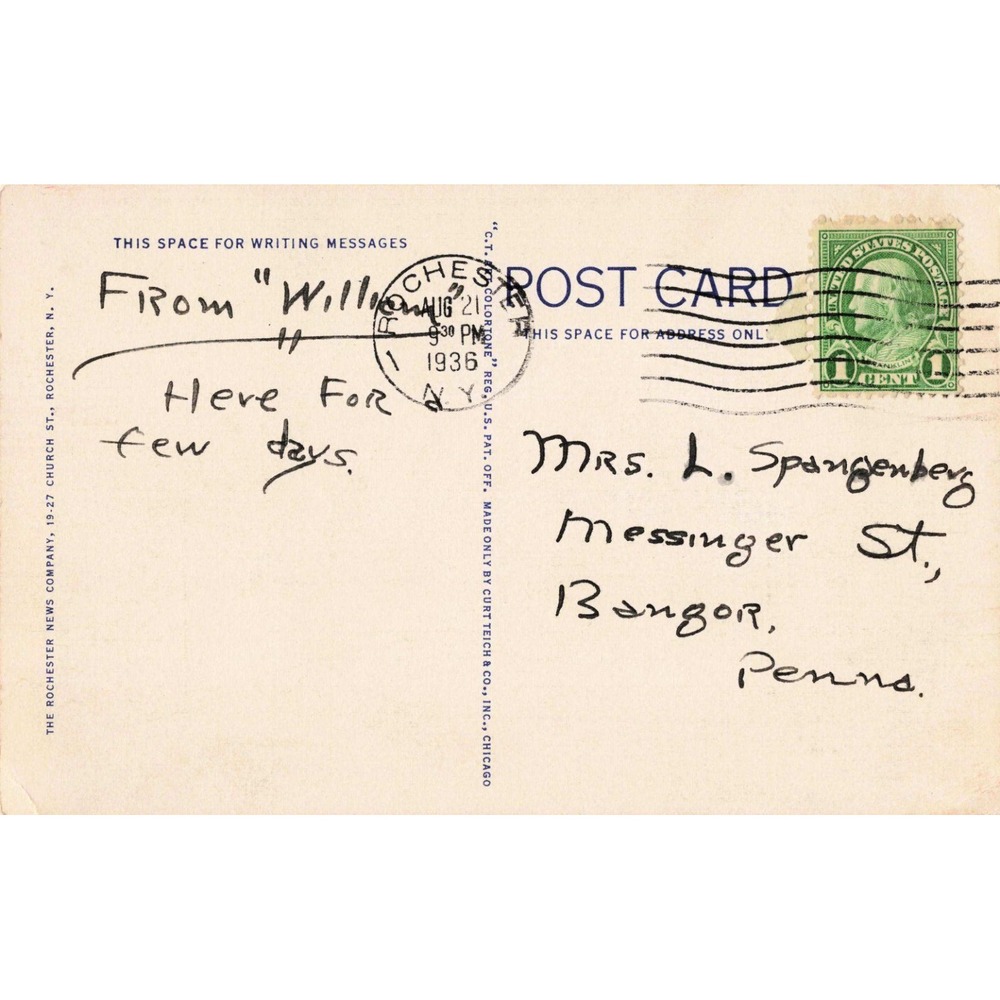 THIS SPACE FOR WRITING MESSAGES
From "William"
"
Here For a
few days.
THE ROCHESTER NEWS COMPANY, 19-27 CHURCH ST., ROCHESTER, N. Y.
"C.T. COLORTONE" REG. U.S. PAT. OFF. MADE ONLY BY CURT TEICH & CO., INC., CHICAGO
ROCHESTER
1
AUG 21
9 30 PM
1936
N.Y.
POST CARD
THIS SPACE FOR ADDRESS ONLY
UNITED STATES POSTAGE
FRANKLIN
1 CENT 1
Mrs. L. Spangenberg
Messinger St.,
Bangor,
Penna.